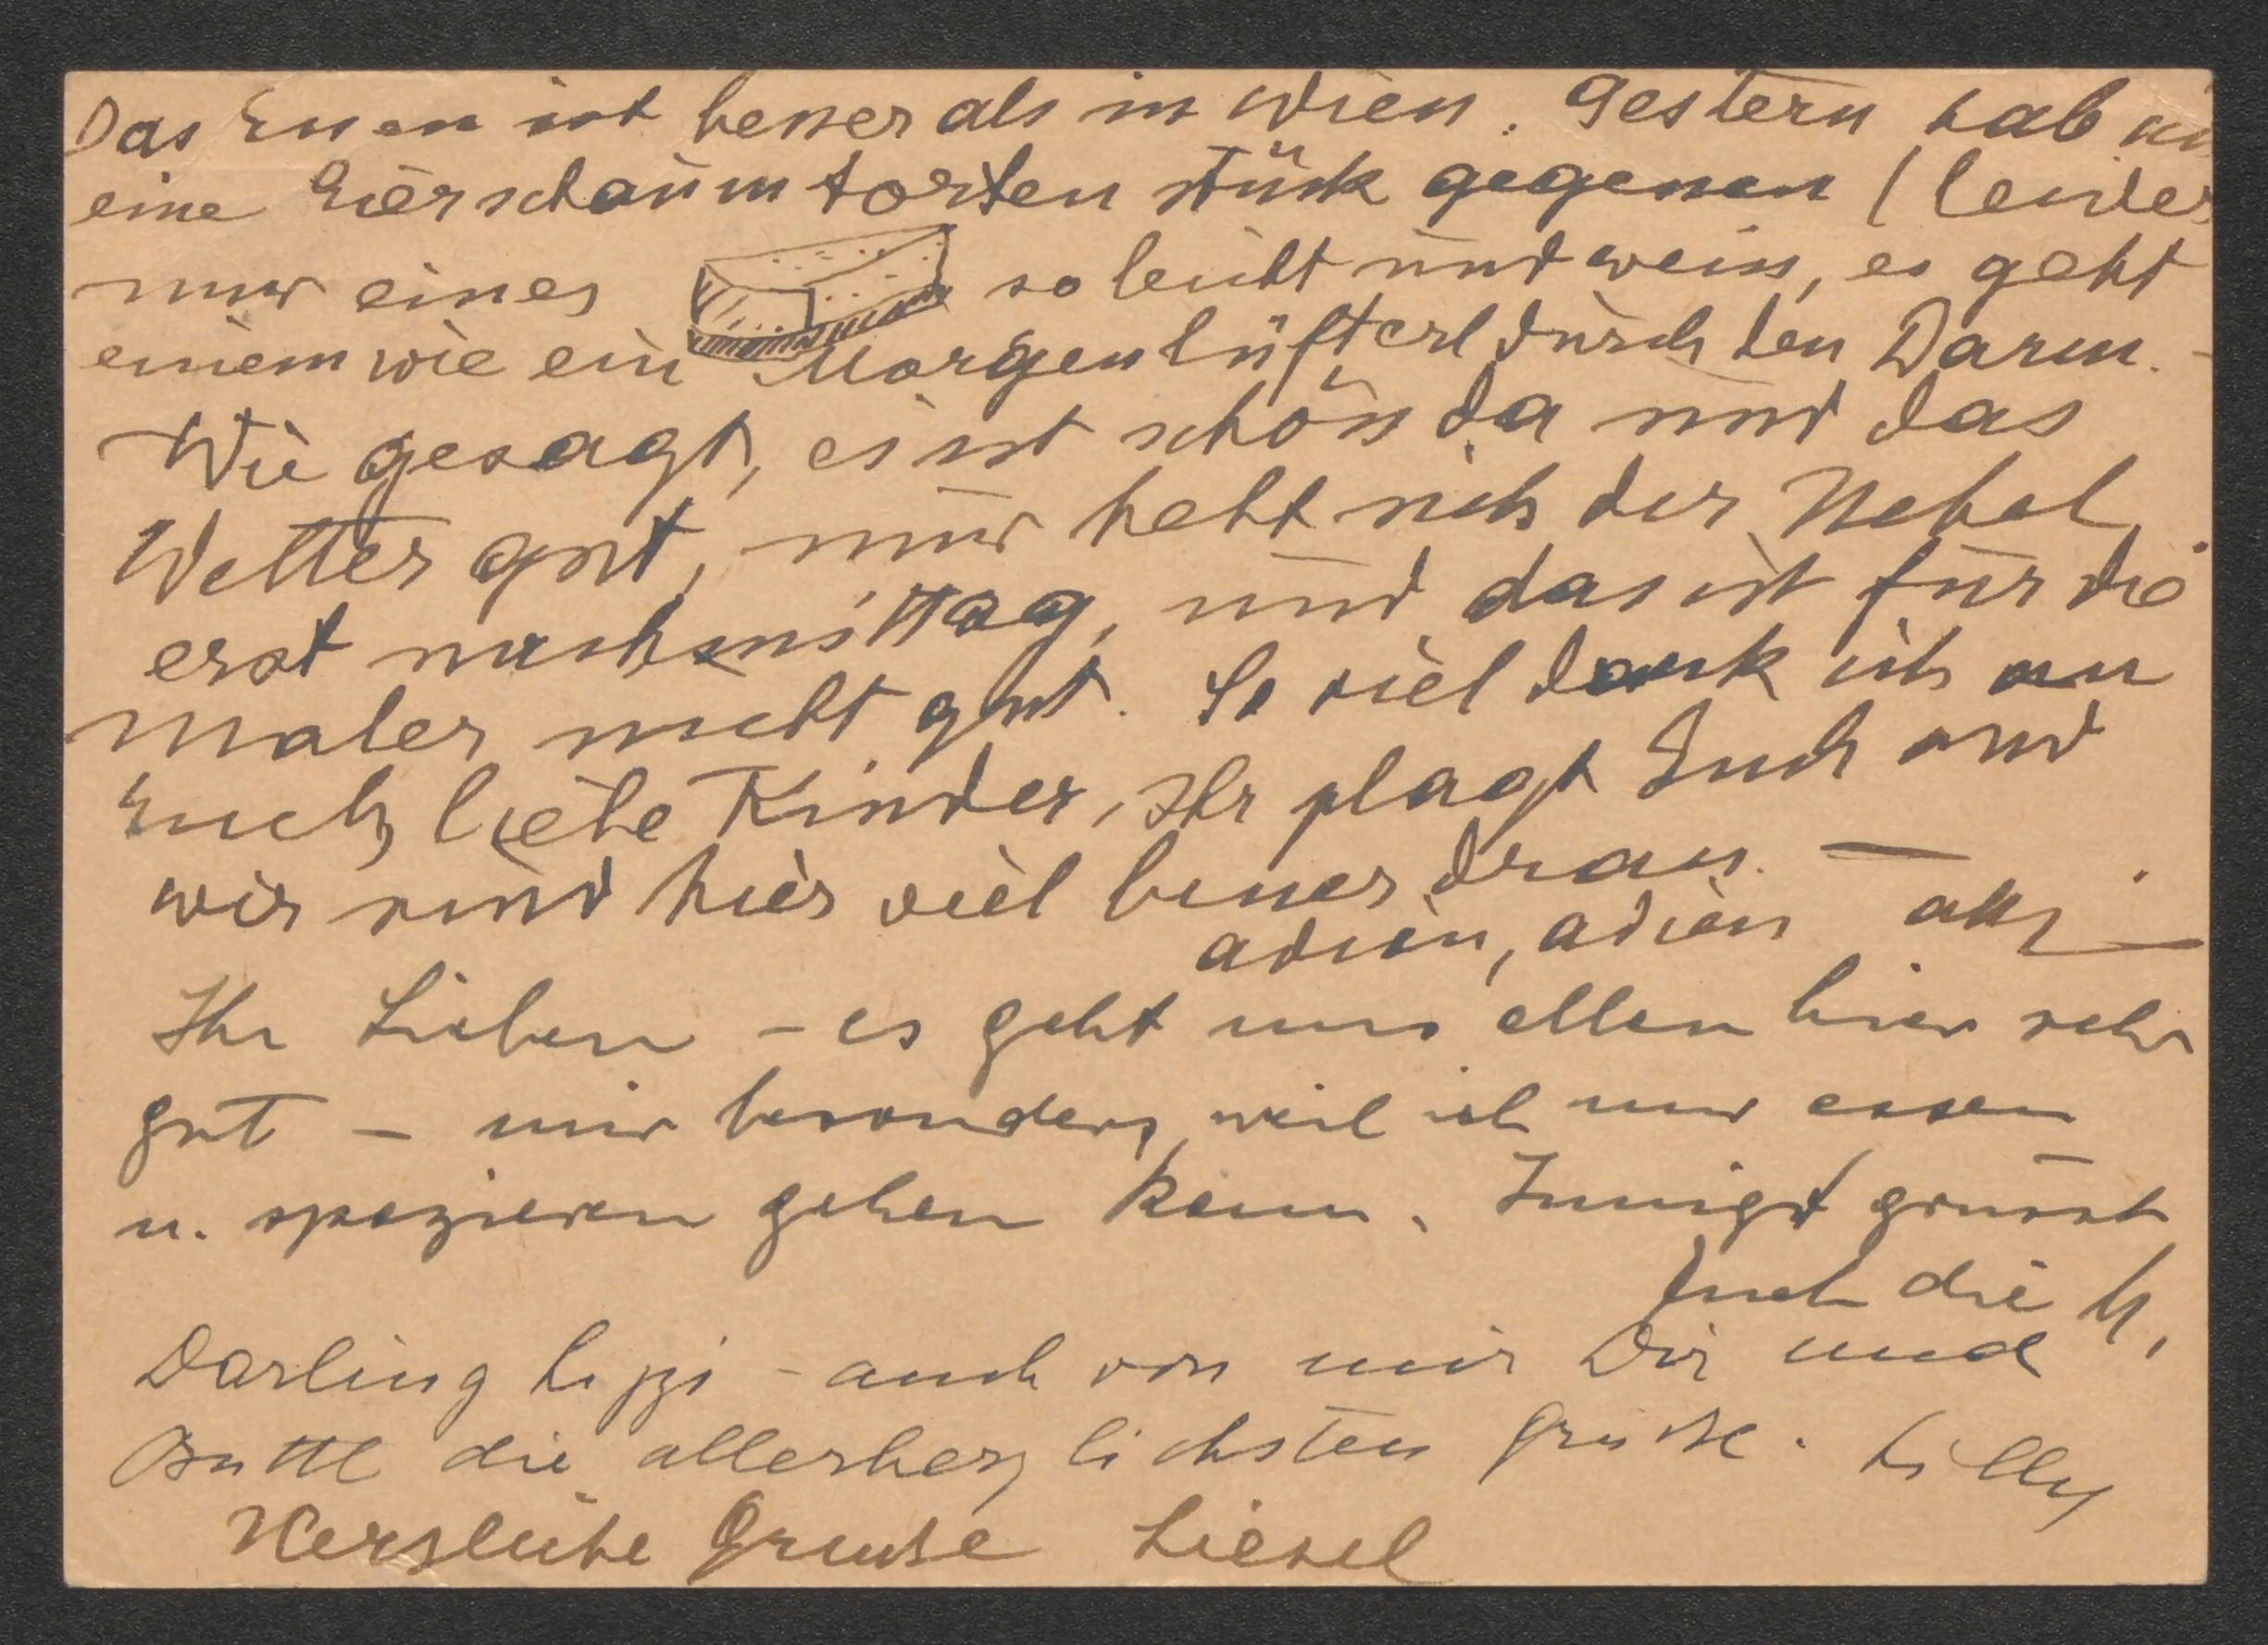 Das Essen ist besser als in Wien. Gestern hab ich
eine Eierschaumtortenstük gegessen (leider
nur eines so leicht und weiss, es geht
einem wie ein Morgenlüfterl durch den Darm. -
Wie gesagt, es ist schön da und das
Wetter gut, nur hebt sich der Nebel
erst nachmittag, und das ist für die
Maler nicht gut. So viel denk ich an
Euch liebe Kinder, Ihr plagt Euch und
wir sind hier viel besser dran. —
adieu, adieu
Ihr Lieben - es geht uns allen hier sehr
gut - mir besonders, weil ich nur essen
u. spazieren gehen kann. Innigst grüsst
Euch die
Darling - auch von mir Dir und
die allerherzlichsten Grüsse. Lilly
Herzliche Grüsse Liesel